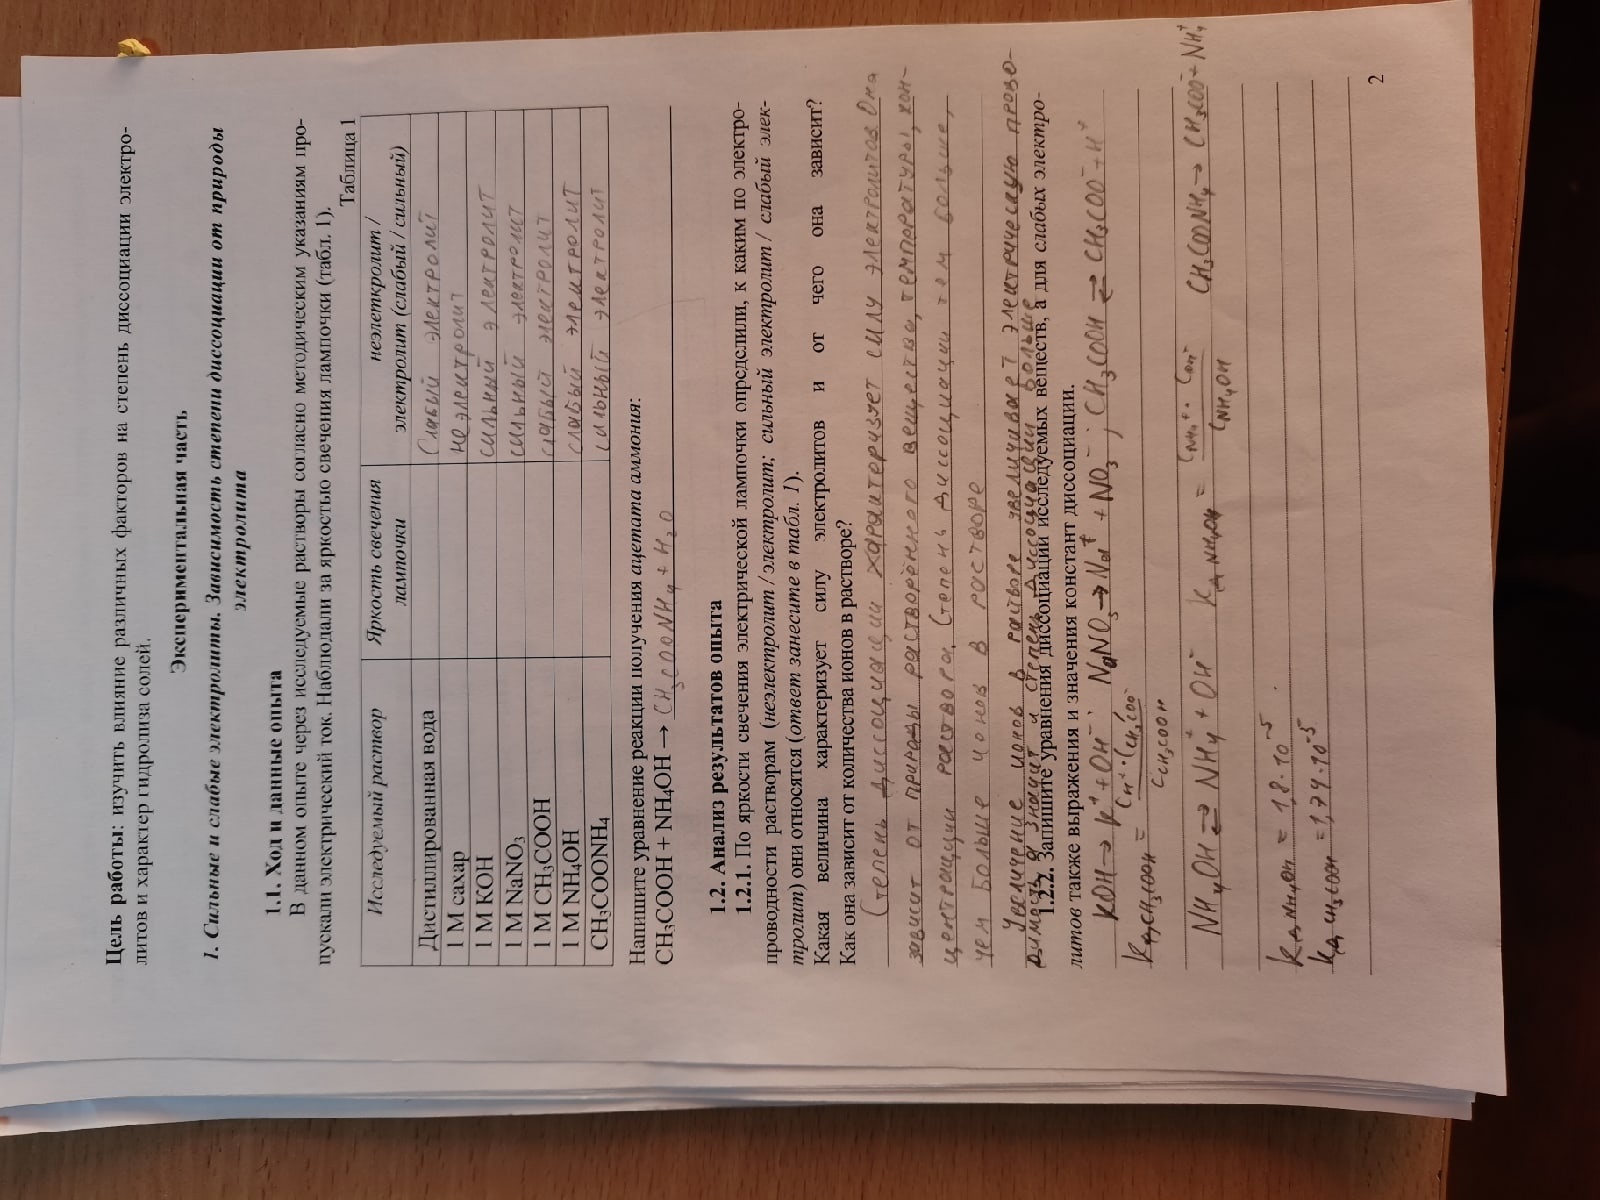 Цель работы: изучить влияние различных факторов на степень диссоциации электро-
литов и характер гидролиза солей.
Экспериментальная часть
1. Сильные и слабые электролиты. Зависимость степени диссоциации от природы
электролита
1.1. Ход и данные опыта
В данном опыте через исследуемые растворы согласно методическим указаниям про-
пускали электрический ток. Наблюдали за яркостью свечения лампочки (табл. 1).
Таблица 1
Исследуемый раствор | Яркость свечения лампочки | неэлеткролит / электролит (слабый / сильный)
Дистиллированная вода | | Слабый электролит
1 М сахар | | неэлектролит
1 М KOH | | сильный электролит
1 М NaNO₃ | | сильный электролит
1 М CH₃COOH | | слабый электролит
1 М NH₄OH | | слабый электролит
CH₃COONH₄ | | сильный электролит
Напишите уравнение реакции получения ацетата аммония:
CH₃COOH + NH₄OH → CH₃COONH₄ + H₂O
1.2. Анализ результатов опыта
1.2.1. По яркости свечения электрической лампочки определили, к каким по электро-
проводности растворам (неэлектролит / электролит; сильный электролит / слабый элек-
тролит) они относятся (ответ занесите в табл. 1).
Какая величина характеризует силу электролитов и от чего она зависит?
Как она зависит от количества ионов в растворе?
Степень диссоциации характеризует силу электролитов. Она
зависит от природы растворённого вещества, температуры, кон-
центрации раствора. Степень диссоциации тем больше,
чем больше ионов в растворе
Увеличение ионов в растворе увеличивает электрическую прово-
димость а значит и степень диссоциации больше
1.2.2. Запишите уравнения диссоциации исследуемых веществ, а для слабых электро-
литов также выражения и значения констант диссоциации.
KOH → K⁺ + OH⁻; NaNO₃ → Na⁺ + NO₃⁻; CH₃COOH ⇄ CH₃COO⁻ + H⁺
Kд,CH₃COOH = CH⁺·CCH₃COO⁻ / CCH₃COOH
NH₄OH ⇄ NH₄⁺ + OH⁻ Kд NH₄OH = CNH₄⁺·COH⁻ / CNH₄OH CH₃COONH₄ → CH₃COO⁻ + NH₄⁺
Kд NH₄OH = 1,8·10⁻⁵
Kд CH₃COOH = 1,74·10⁻⁵
2